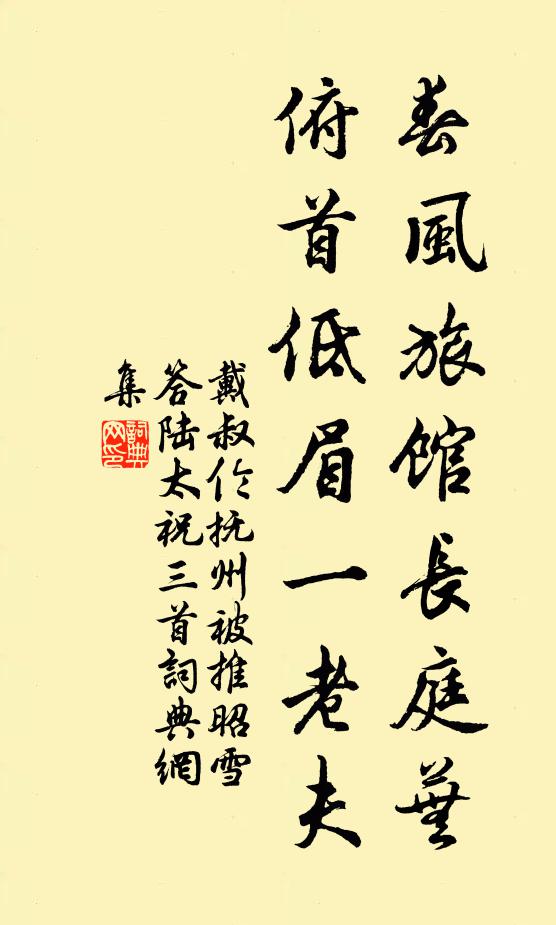 春風旅館長庭蕪
俯首低眉一老夫
戴叔伦抚州被推昭雪
答陆太祝三首詞典網
集
詞典网印